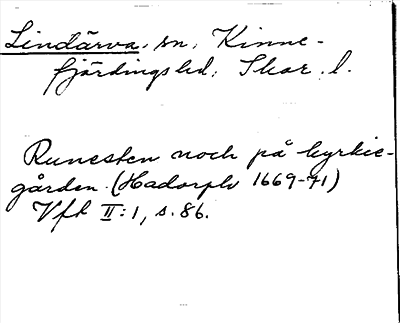 Lindärva, sn, Kinne-
fjärdings hd, Skar. l.
Runesten noch på kyrkie-
gården. (Hadorph 1669-71)
Vft II:1, s. 86.